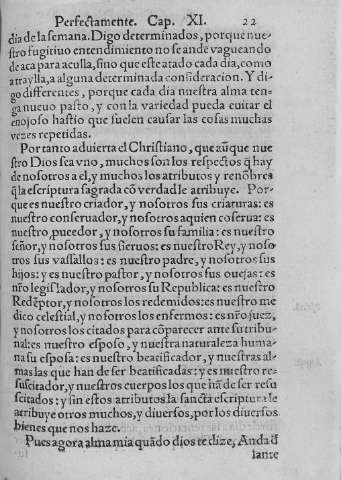 Perfectamente. Cap. XI. 22
dia de la semana. Digo determinados, porque nue-
stro fugitiuo entendimiento no se ande vagueando
de aca para aculla, sino que este atado cada dia, como
a traylla, a alguna determinada consideracion. Y di-
go differentes, porque cada dia nuestra alma ten-
ga nueuo pasto, y con la variedad pueda euitar el
enojoso hastio que suelen causar las cosas muchas
vezes repetidas.
Por tanto aduierta el Christiano, que aũque nue
stro Dios sea vno, muchos son los respectos q̃ hay
de nosotros a el, y muchos los atributos y renõbres
q̃ la escriptura sagrada cõ verdad le atribuye. Por-
que es nuestro criador, y nosotros sus criaturas: es
nuestro conseruador, y nosotros a quien cõserua: es
nuestro, pueedor, y nosotros su familia: es nuestro
señor, y nosotros sus sieruos: es nuestro Rey, y noso
tros sus vassallos: es nuestro padre, y nosotros sus
hijos: y es nuestro pastor, y nosotros sus ouejas: es
nr̃o legislador, y nosotros su Republica: es nuestro
Redẽptor, y nosotros los redemidos: es nuestro me
dico celestial, y nosotros los enfermos: es nr̃o juez,
y nosotros los citados para cõparecer ante su tribu-
nal: es nuestro esposo, y nuestra naturaleza huma-
na su esposa: es nuestro beatificador, y nuestras al-
mas las que han de ser beatificadas: y es nuestro re-
suscitador, y nuestros cuerpos los que hã de ser resu
scitados: y sin estos atributos la sancta escriptura le
atribuye otros muchos, y diuersos, por los diuersos
bienes que nos haze.
Pues agora alma mia quãdo dios te dize, Anda đ
lante